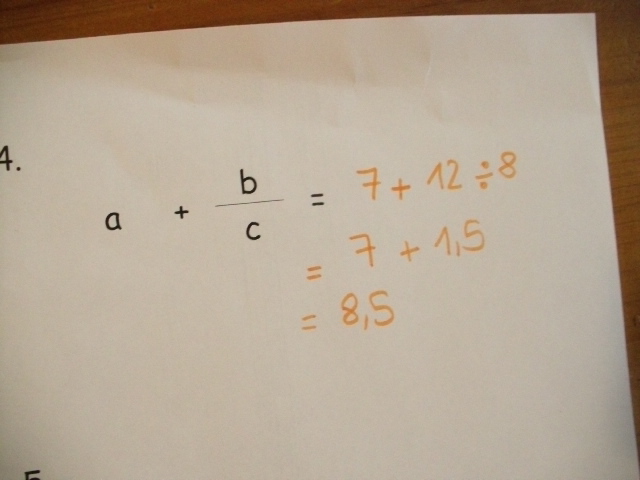 4.
a + b/c = 7 + 12 ÷ 8
= 7 + 1,5
= 8,5